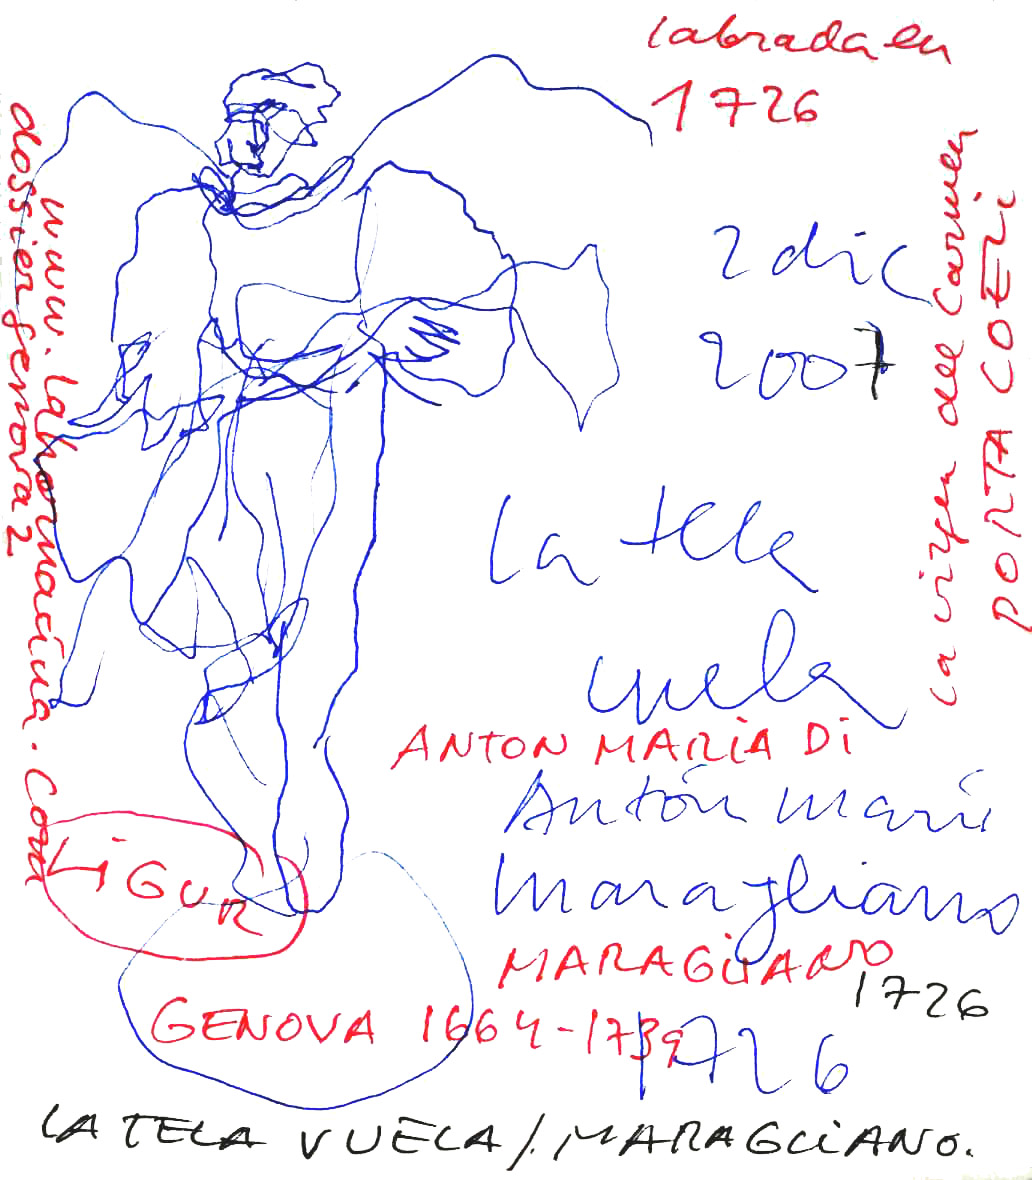 labrada en
1726
2 dic
2007
la virgen del Carmen
PORTA COELI
www.lahornacina.com
dossiergenova2
la tela
vuela
ANTON MARIA Di
Antón María
Maragliano
MARAGLIANO
1726
1726
LiGUR
GENOVA 1664-1739
LA TELA VUELA/.MARAGLiANO.